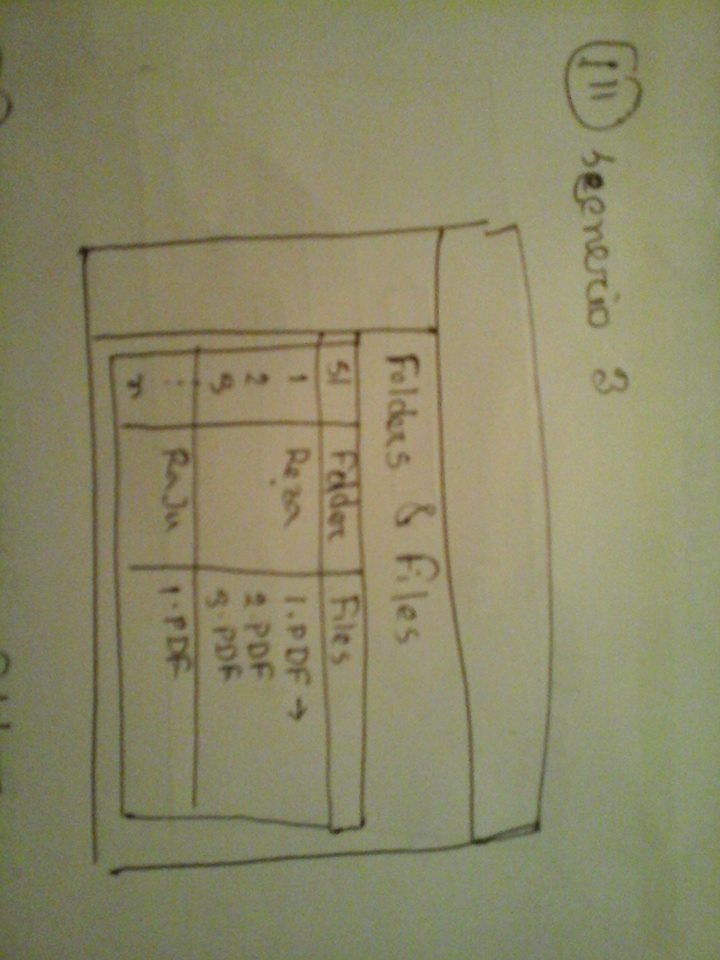 III Scenerio 3
Folders & Files
Sl Folder Files
1 Reza 1.PDF →
2 2.PDF
3 3.PDF
⋮ RaJu 1.PDF
n